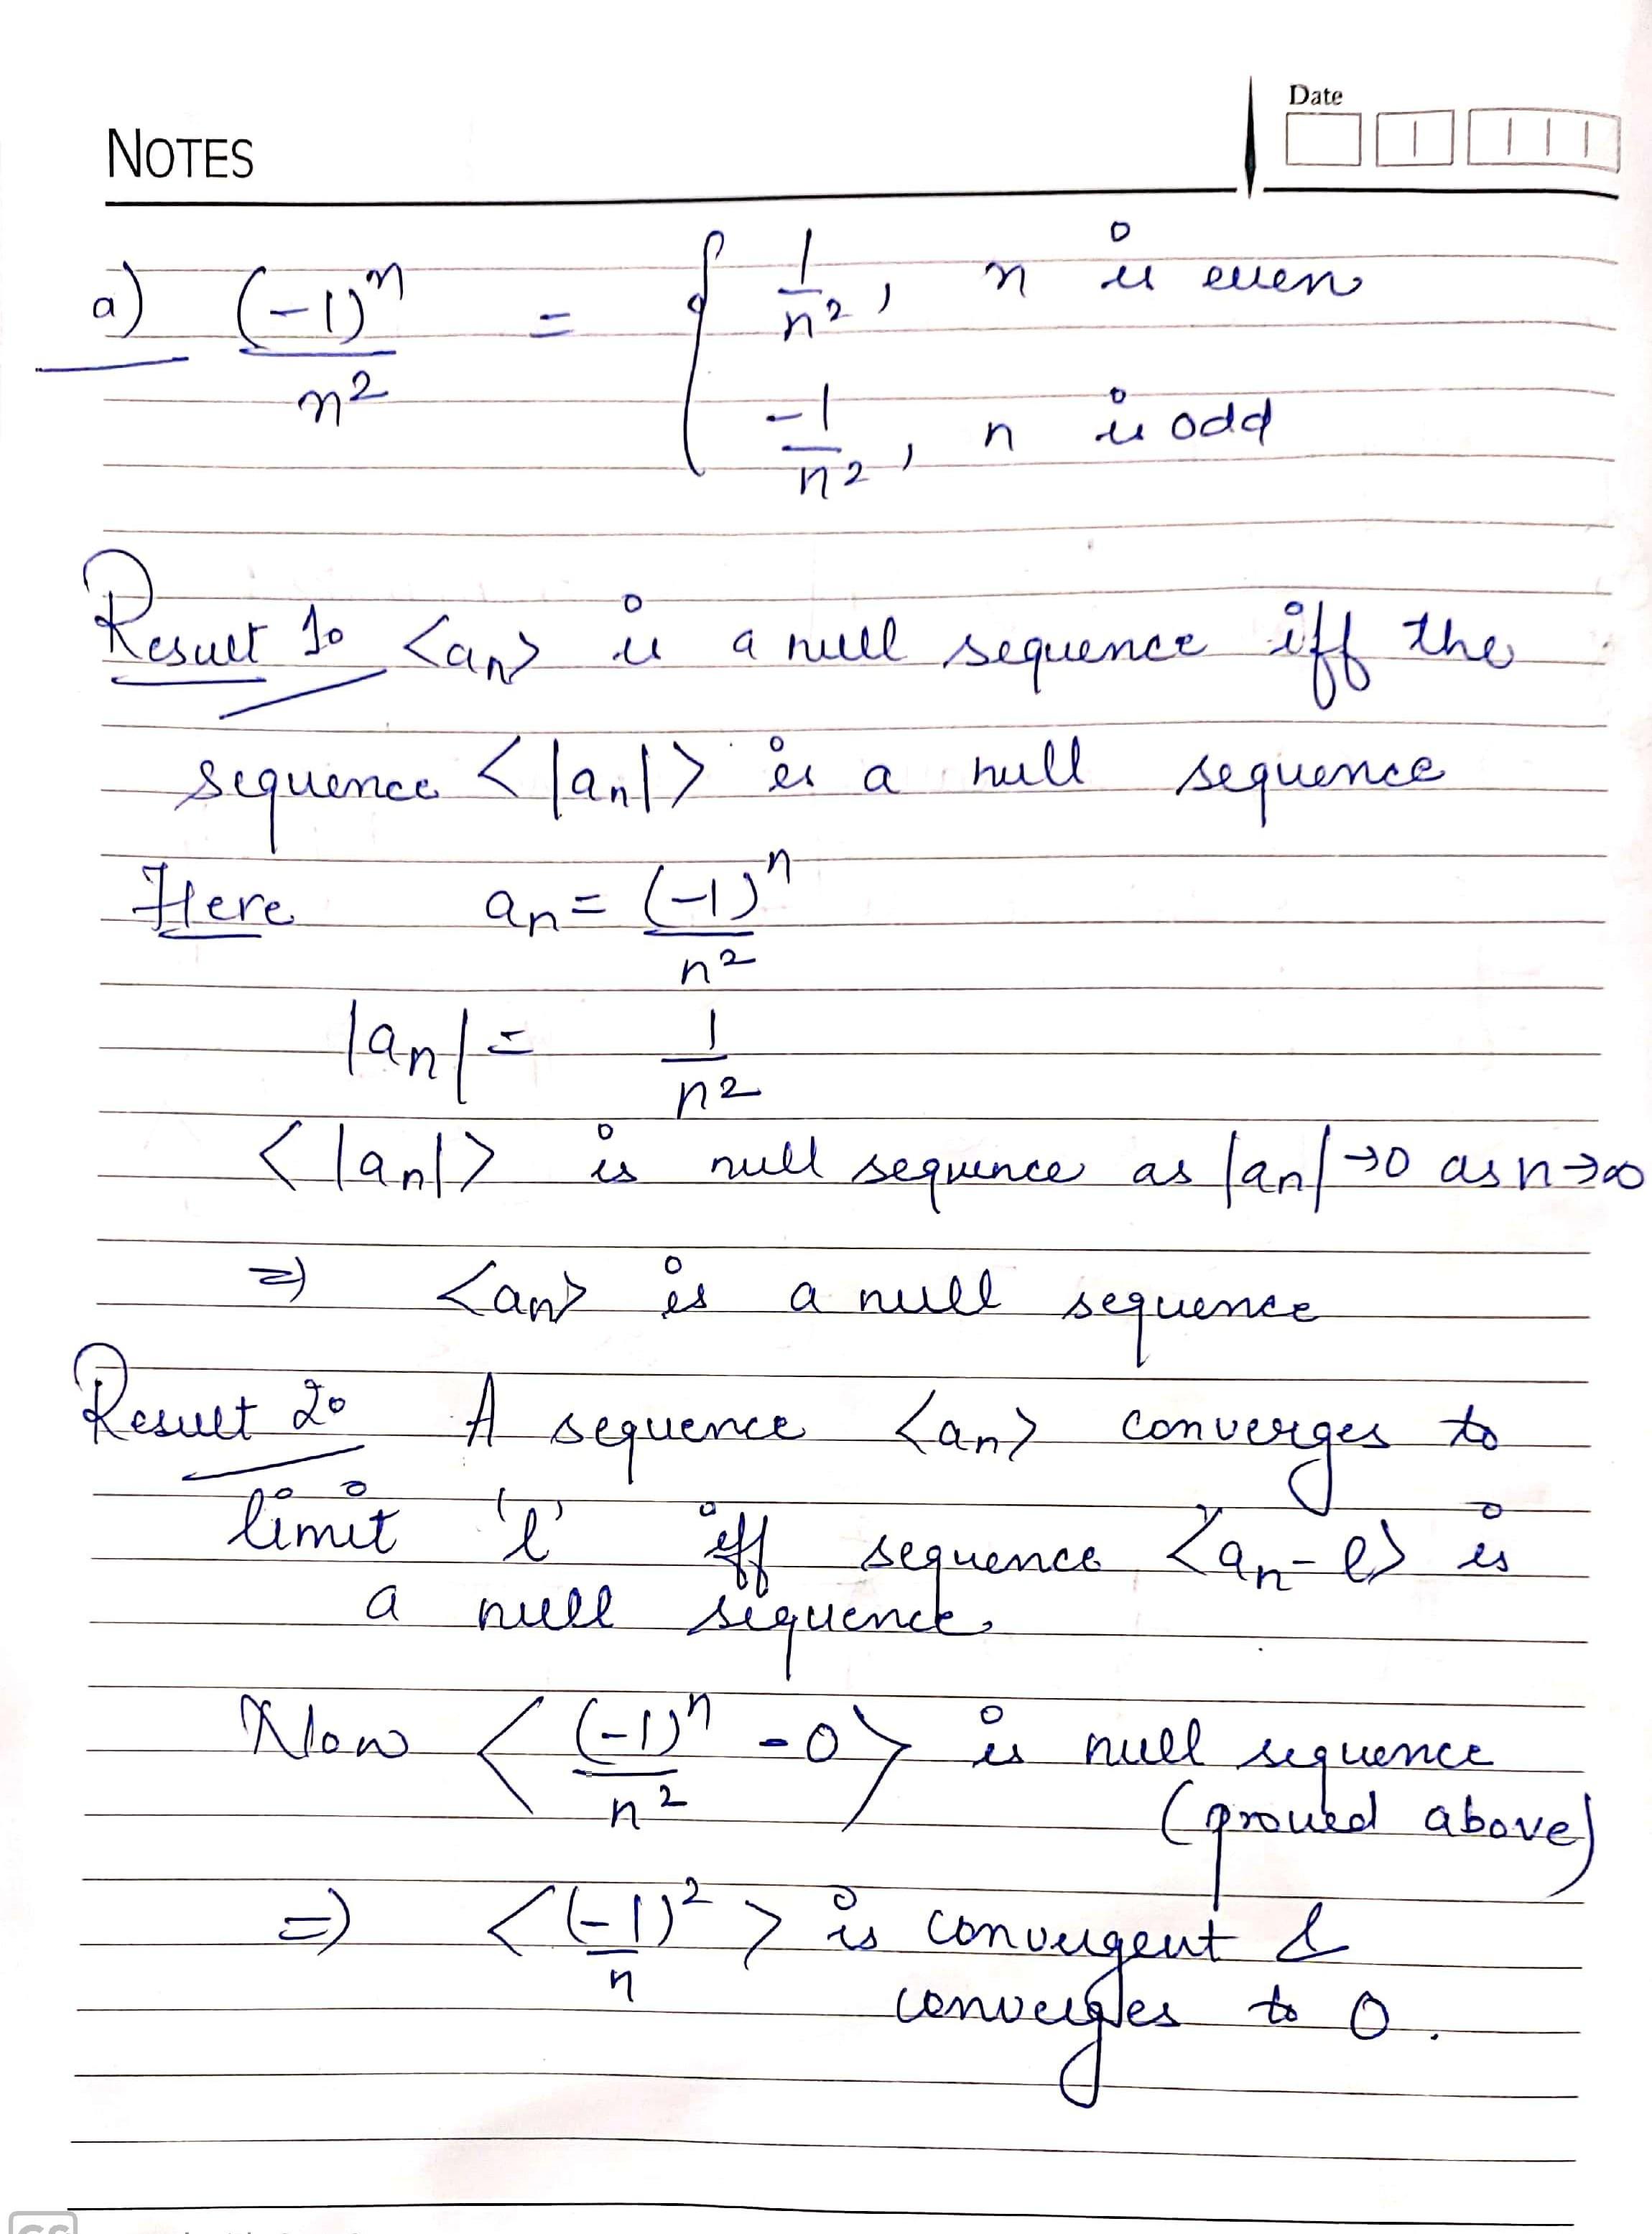 Date
NOTES
a) (-1)^n / n^2 = { 1/n^2, n is even
-1/n^2, n is odd
Result 1: <an> is a null sequence iff the
sequence <|an|> is a null sequence
Here an = (-1)^n / n^2
|an| = 1/n^2
<|an|> is null sequence as |an|→0 as n→∞
⇒ <an> is a null sequence
Result 2: A sequence <an> converges to
limit 'l' iff sequence <an-l> is
a null sequence.
Now <(-1)^n / n^2 - 0> is null sequence
(proved above)
⇒ <(-1)^2 / n> is convergent &
converges to 0.